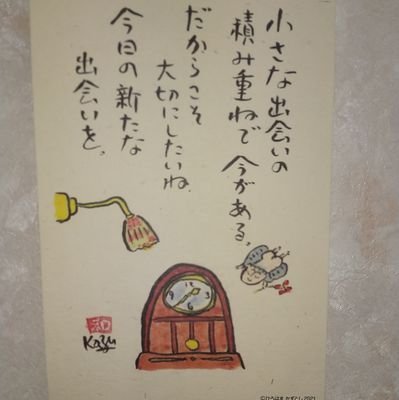 小さな出会いの
積み重ねで今がある。
だからこそ
大切にしたいね
今日の新たな
出会いを。
12
和
Kazu